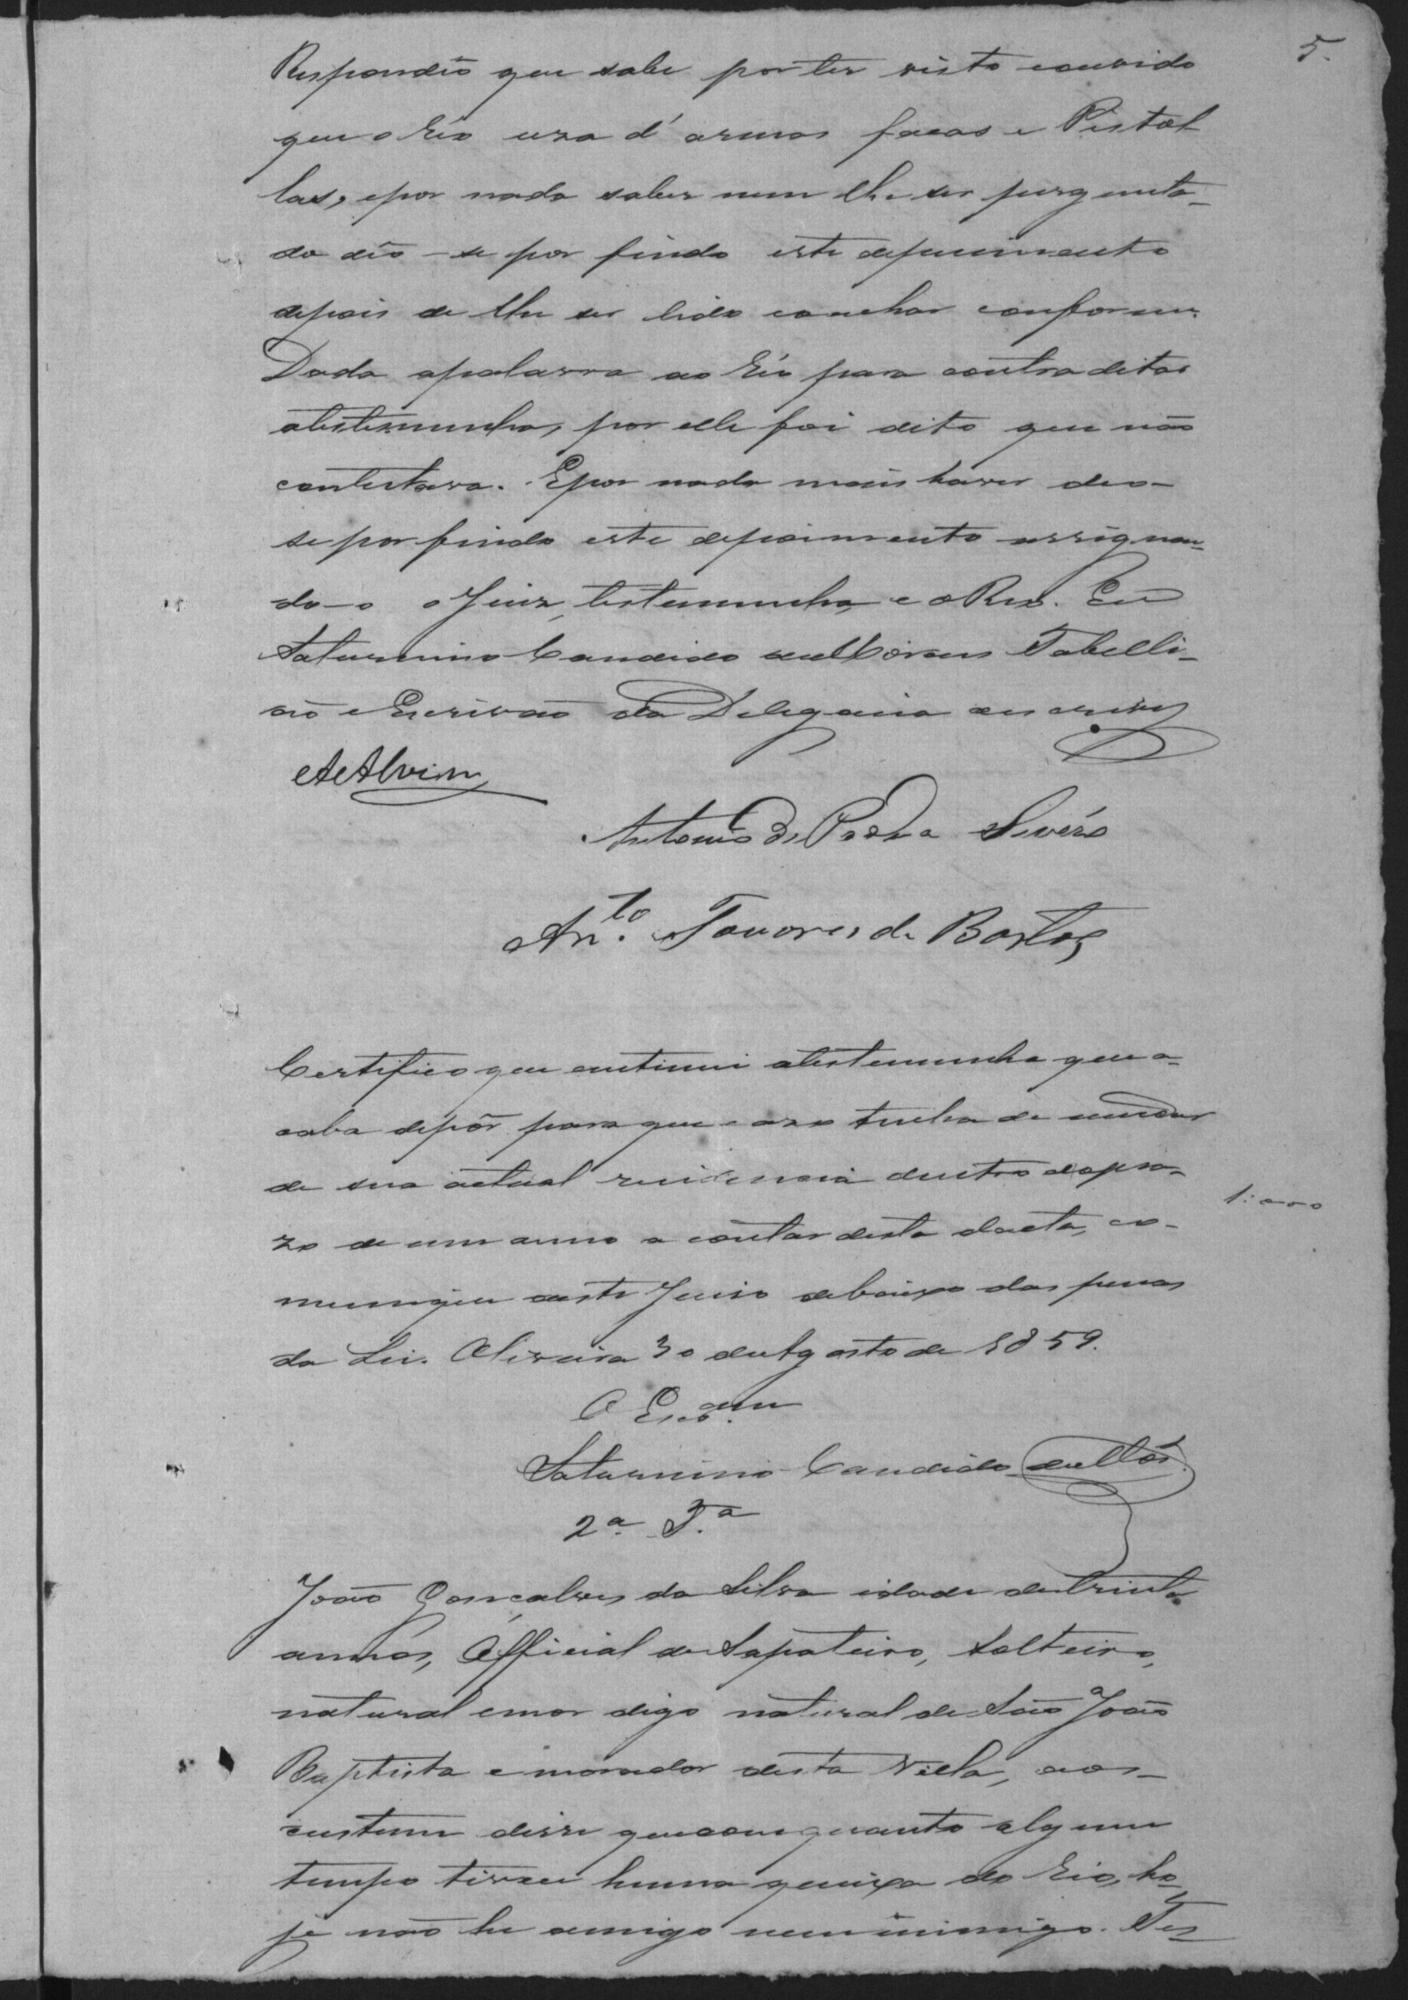 5.
Respondeo que sabe por ter visto e ouvido
que o Réo usa d'armas facas e Pistol
las, e por nada saber nem lhe ser pergunta-
do deo-se por findo este depoimento
depois de lhe ser lido e o achar conforme.
Dada a palavra ao Réo para contraditar
a testemunha, por elle foi dito que não
contestava. E por nada mais haver deo-
se por findo este depoimento assignan-
do-o o Juiz, testemunha, e o Reo. Eu
Saturnino Candido de Moraes Tabelli-
ão e Escrivão da Delegacia escrivy
A Alvim
Antonio de Padua Sevéro
An.to Tavares de Bastos
Certifico que intimei a testemunha que a-
caba depôr para que caso tenha de mudar
de sua actual residencia dentro do pra-
zo de um anno a contar desta dacta, co-
munique a este Juizo debaixo das penas
da Lei. Oliveira 30 de Agosto de 1859.
O Escram
Saturnino Candido de Mos.
2ª T.ª
João Gonçalves da Silva idade de trinta
annos, Official de Sapateiro, Solteiro,
natural e mor digo natural de São João
Baptista e morador desta Villa, aos
custume disse que com quanto algum
tempo tivera huma queixa do Reo, ho-
je não he amigo nem inimigo. Tes-